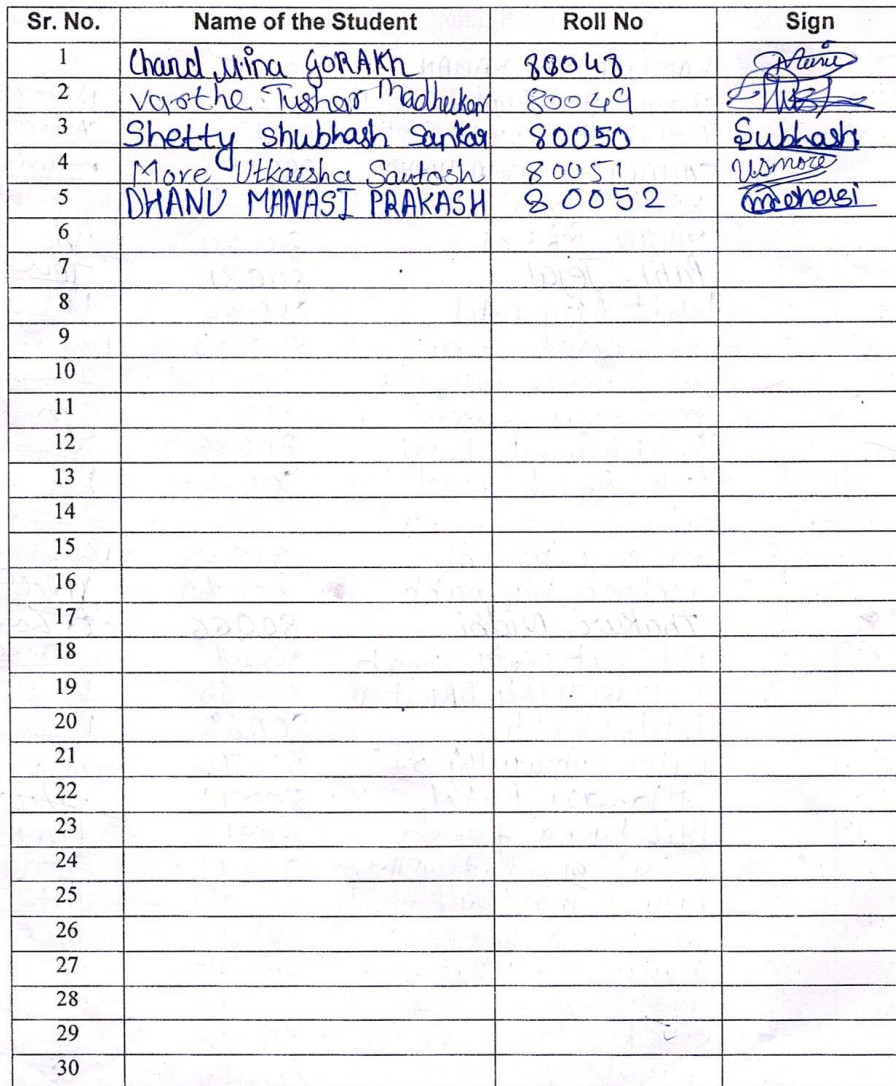 Sr. No. Name of the Student Roll No Sign
1 Chand Mina GORAKh 80048
2 Varthe Tushar Madhukar 80049
3 Shetty Shubhash Sankar 80050 Subhash
4 More Utkarsha Santosh 80051 Usmore
5 DHANU MANASI PRAKASH 80052
6
7
8
9
10
11
12
13
14
15
16
17
18
19
20
21
22
23
24
25
26
27
28
29
30